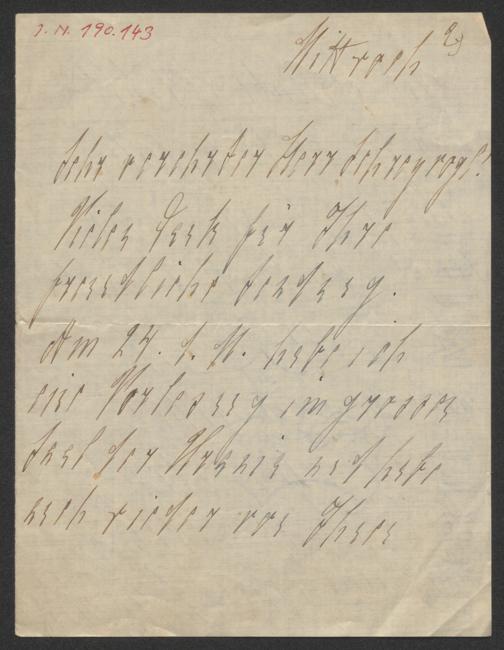 I. N. 190.143
Mittwoch
Sehr verehrter Herr Schreyvogl!
Vielen Dank für Ihre
freundliche Sendung.
Am 24. d. M. habe ich
eine Vorlesung im grossen
Saal der Urania und habe
auch wieder von Ihnen